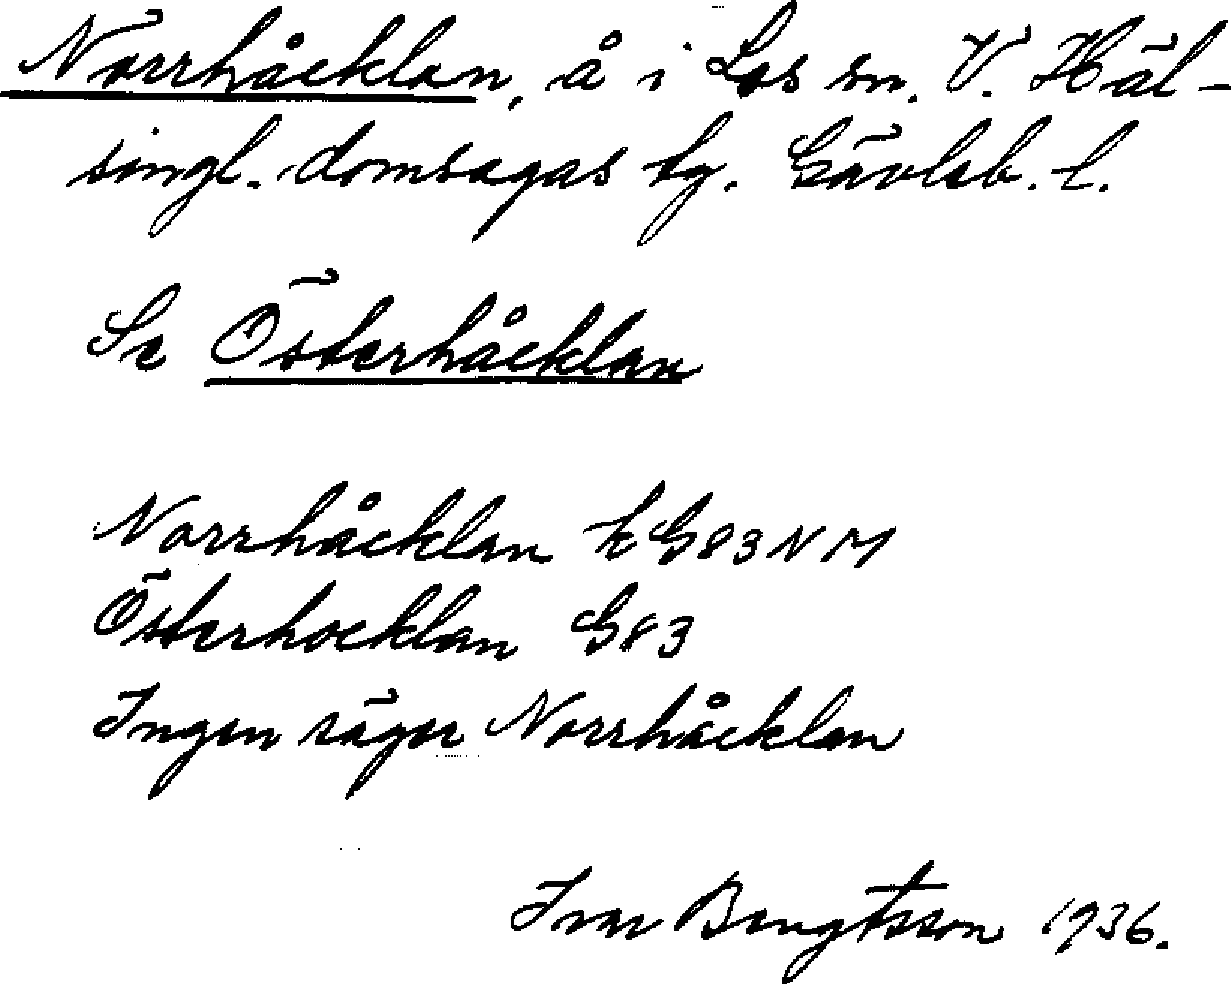 Norrhåcklan, å i Los sn. V. Häl-
singl. domsagas tg. Gävleb. l.
Se Österhåcklan
Norrhåcklan k G83NM
Österhocklan G83
Ingen säger Norrhåcklan
Ivar Bengtsson 1936.